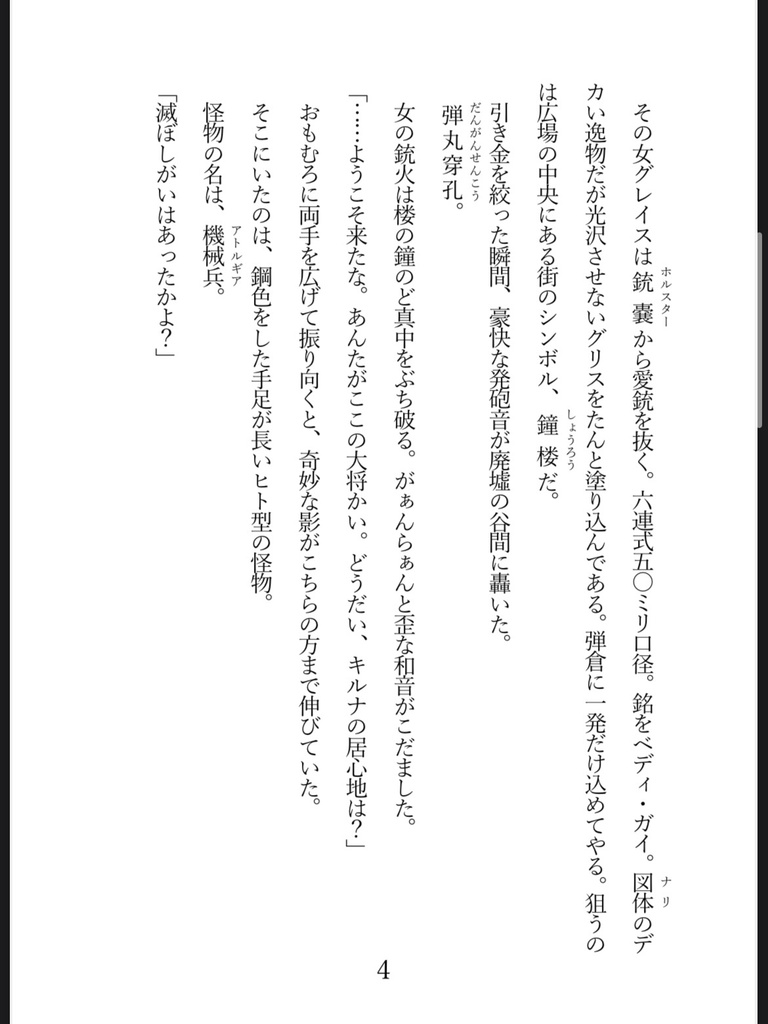 その女グレイスは銃嚢から愛銃を抜く。六連式五〇ミリ口径。銘をベディ・ガイ。図体のデ
ホルスター
ナリ
カい逸物だが光沢させないグリスをたんと塗り込んである。弾倉に一発だけ込めてやる。狙うの
は広場の中央にある街のシンボル、鐘楼だ。
しょうろう
引き金を絞った瞬間、豪快な発砲音が廃墟の谷間に轟いた。
弾丸穿孔。
だんがんせんこう
女の銃火は楼の鐘のど真中をぶち破る。がぁんらぁんと歪な和音がこだました。
「……ようこそ来たな。あんたがここの大将かい。どうだい、キルナの居心地は？」
おもむろに両手を広げて振り向くと、奇妙な影がこちらの方まで伸びていた。
そこにいたのは、鋼色をした手足が長いヒト型の怪物。
怪物の名は、機械兵。
アトルギア
「滅ぼしがいはあったかよ？」
4